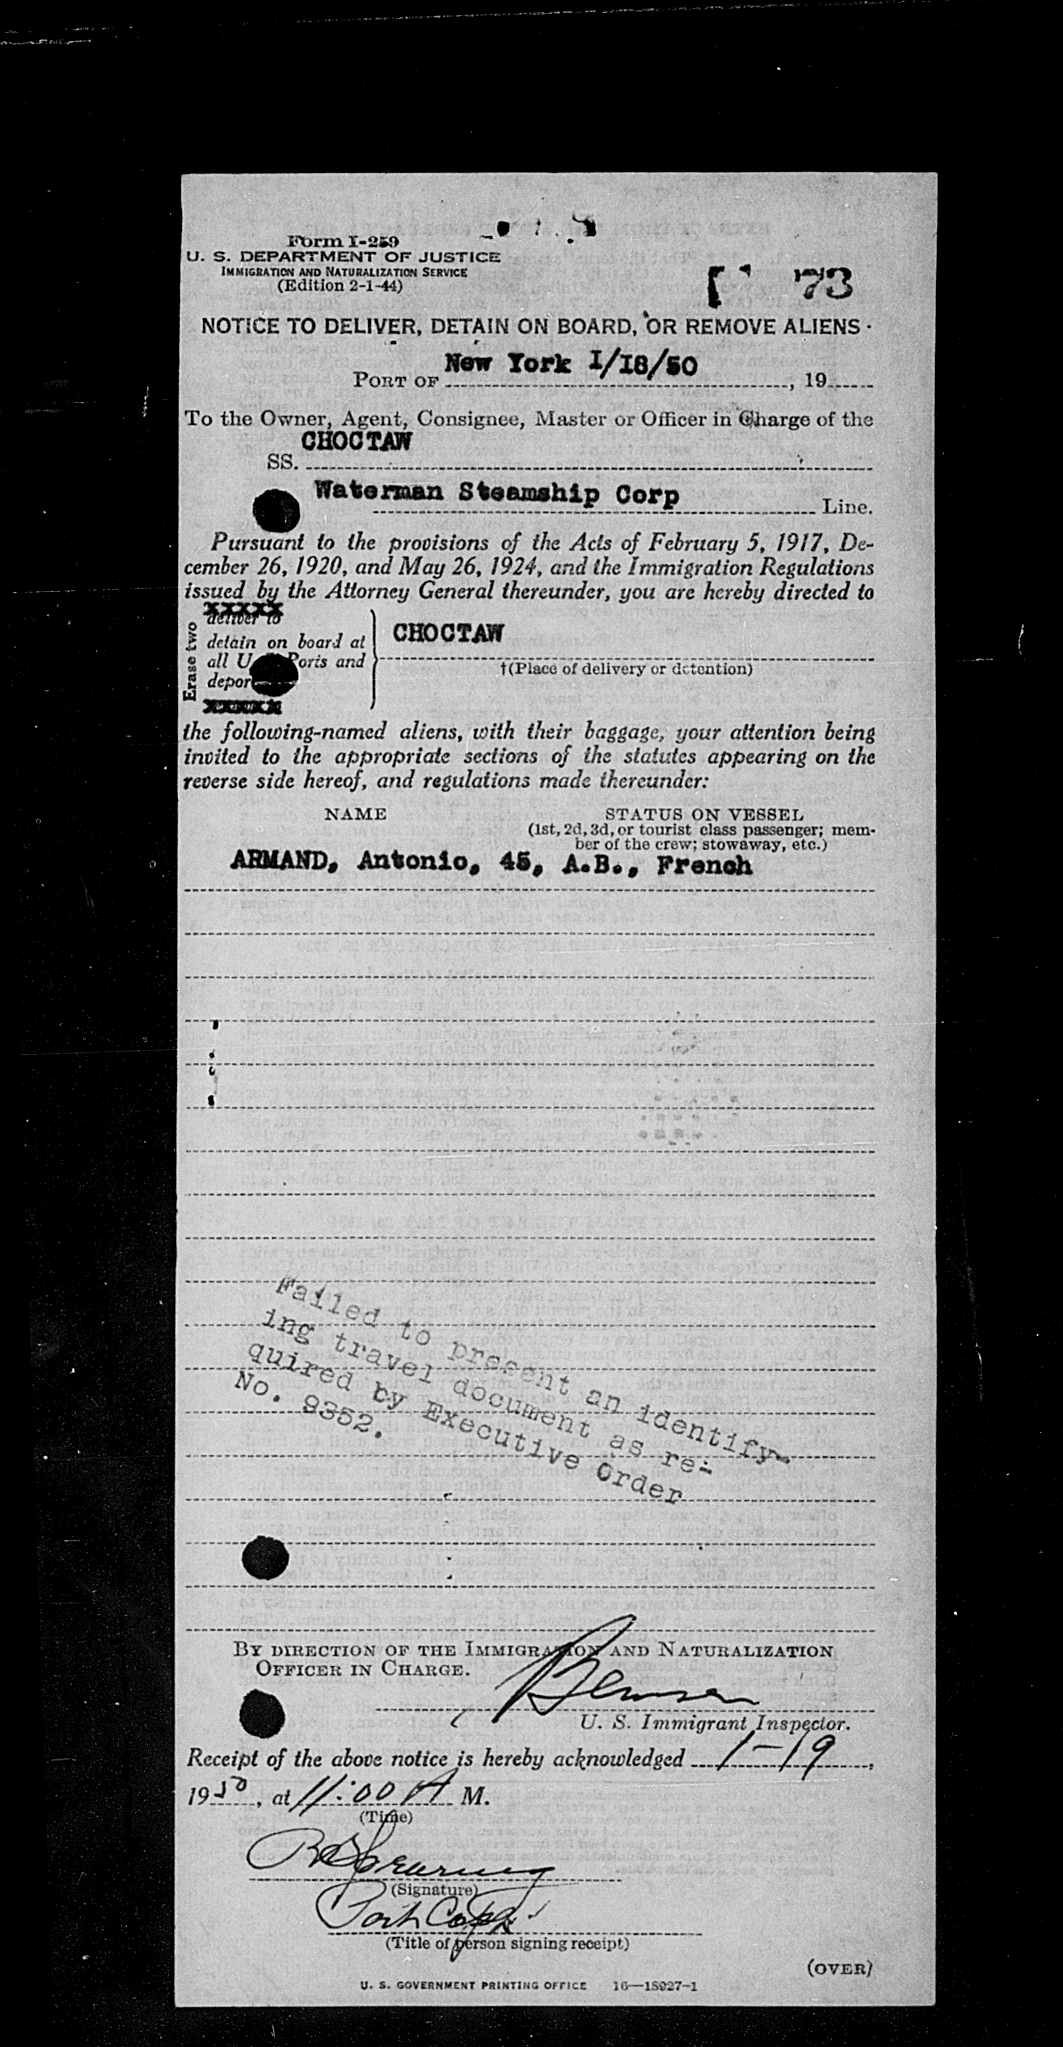 Form I-259
U. S. DEPARTMENT OF JUSTICE
IMMIGRATION AND NATURALIZATION SERVICE
(Edition 2-1-44)
73
NOTICE TO DELIVER, DETAIN ON BOARD, OR REMOVE ALIENS
PORT OF New York 1/18/50, 19
To the Owner, Agent, Consignee, Master or Officer in Charge of the
SS. CHOCTAW
Waterman Steamship Corp Line.
Pursuant to the provisions of the Acts of February 5, 1917, De-
cember 26, 1920, and May 26, 1924, and the Immigration Regulations
issued by the Attorney General thereunder, you are hereby directed to
Erase two
XXXXX
deliver to
detain on board at
all U. Ports and
depor
XXXXX
CHOCTAW
†(Place of delivery or detention)
the following-named aliens, with their baggage, your attention being
invited to the appropriate sections of the statutes appearing on the
reverse side hereof, and regulations made thereunder:
NAME
STATUS ON VESSEL
(1st, 2d, 3d, or tourist class passenger; mem-
ber of the crew; stowaway, etc.)
ARMAND, Antonio, 45, A.B., French
Failed to present an identify-
ing travel document as re-
quired by Executive Order
No. 9352.
BY DIRECTION OF THE IMMIGRATION AND NATURALIZATION
OFFICER IN CHARGE.
U. S. Immigrant Inspector.
Receipt of the above notice is hereby acknowledged 1-19,
1950, at 11:00 A M.
(Time)
(Signature)
Port Capt.
(Title of person signing receipt)
(OVER)
U. S. GOVERNMENT PRINTING OFFICE 16—18927-1